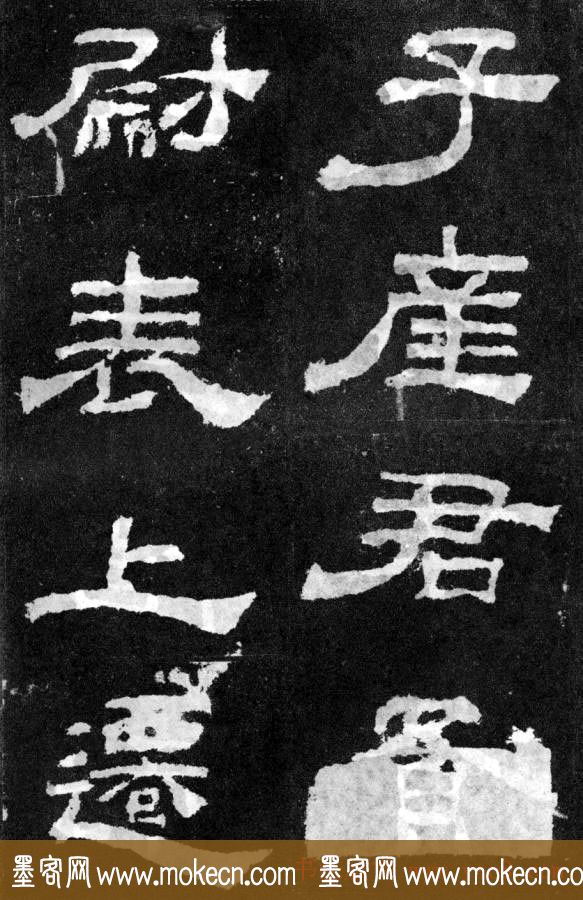 子產君
尉表上遷
墨客网 www.mokecn.com 墨客网 www.mokecn.co